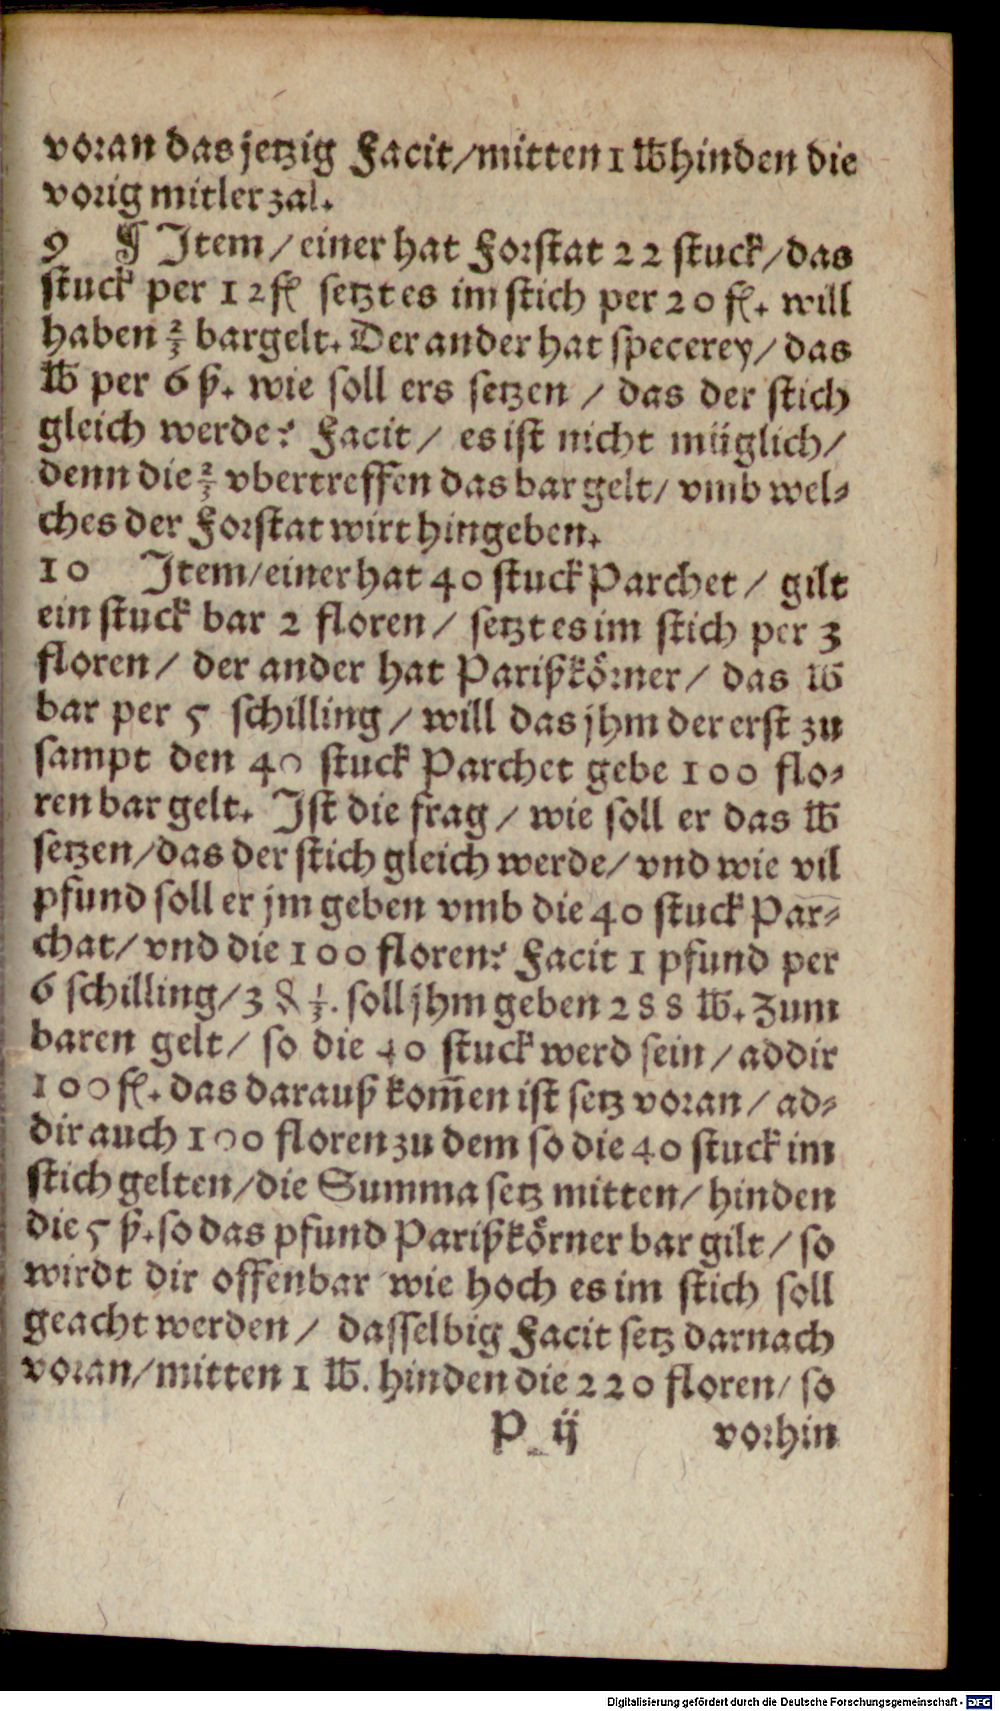 voran das jetzig Facit/mitten 1 ℔ hinden die
vorig mitler zal.
9 ¶ Item/einer hat Forstat 22 stuck/das
stuck per 12 fl setzt es im stich per 20 fl. will
haben 2/3 bargelt. Der ander hat specerey/das
℔ per 6 ß. wie soll ers setzen/das der stich
gleich werde? Facit/es ist nicht müglich/
denn die 2/3 vbertreffen das bar gelt/vmb wel-
ches der Forstat wirt hingeben.
10 Item/einer hat 40 stuck Parchet/gilt
ein stuck bar 2 floren/setzt es im stich per 3
floren/der ander hat Parißkörner/das ℔
bar per 5 schilling/will das jhm der erst zu
sampt den 40 stuck Parchet gebe 100 flo-
ren bar gelt. Ist die frag/wie soll er das ℔
setzen/das der stich gleich werde/vnd wie vil
pfund soll er jm geben vmb die 40 stuck Par-
chat/vnd die 100 floren? Facit 1 pfund per
6 schilling/3 ₰ 1/3. soll jhm geben 288 ℔. Zum
baren gelt/so die 40 stuck werd sein/addir
100 fl. das darauß kom̄en ist setz voran/ad-
dir auch 100 floren zu dem so die 40 stuck im
stich gelten/die Summa setz mitten/hinden
die 5 ß. so das pfund Parißkörner bar gilt/so
wirdt dir offenbar wie hoch es im stich soll
geacht werden/dasselbig Facit setz darnach
voran/mitten 1 ℔. hinden die 220 floren/so
P ij vorhin
Digitalisierung gefördert durch die Deutsche Forschungsgemeinschaft - DFG